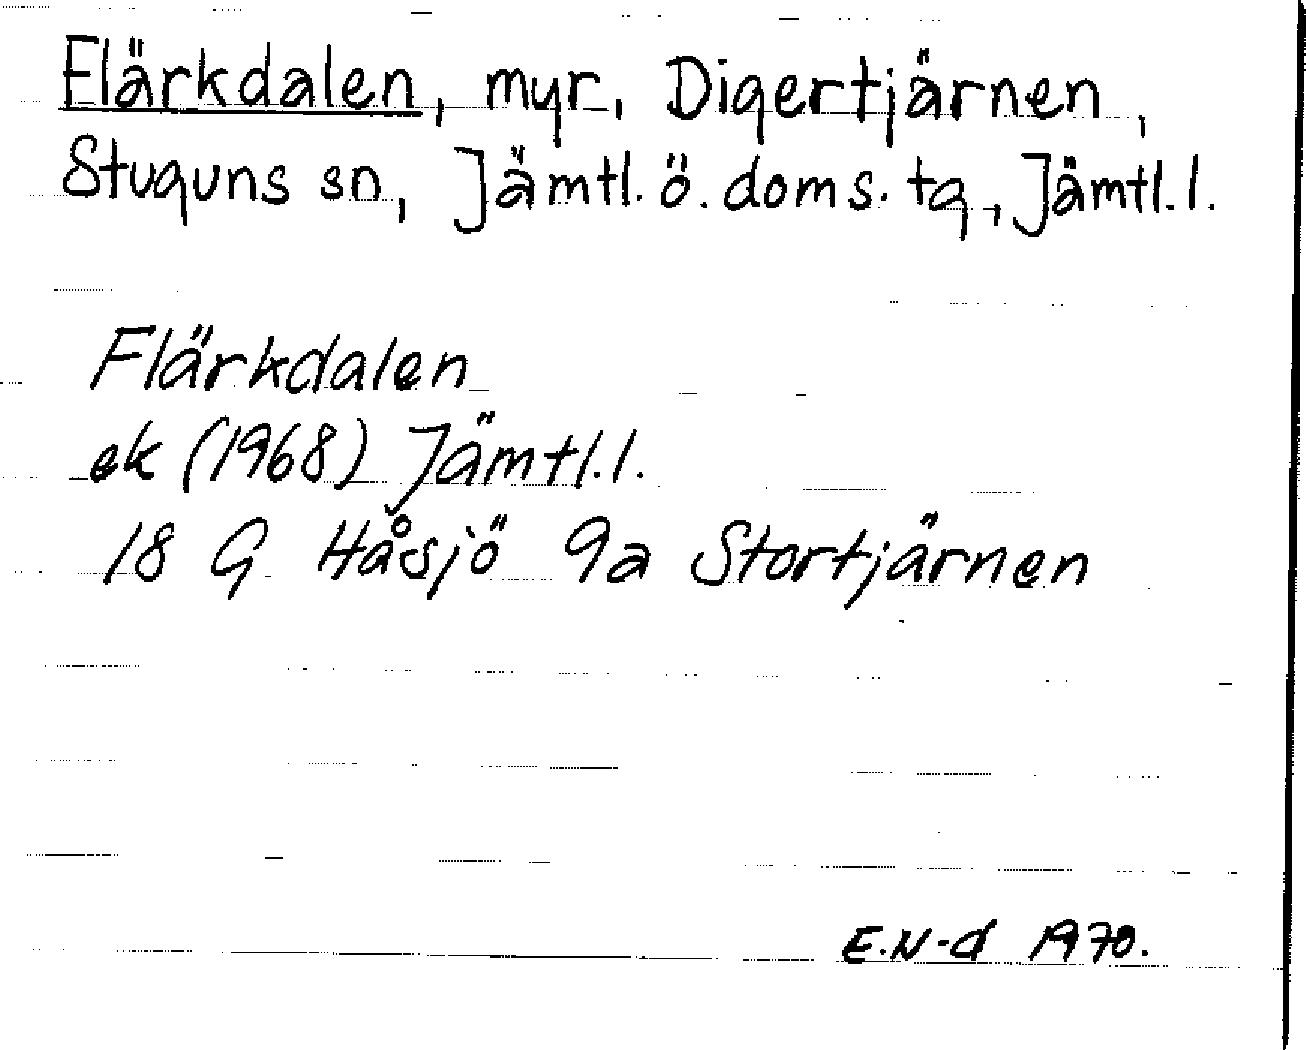 Flärkdalen, myr, Digertjärnen,
Stuguns sn, Jämtl. ö. doms. tg, Jämtl. l.
Flärkdalen
ek (1968) Jämtl. l.
18 G Håsjö 9a Stortjärnen
E.N-d 1970.